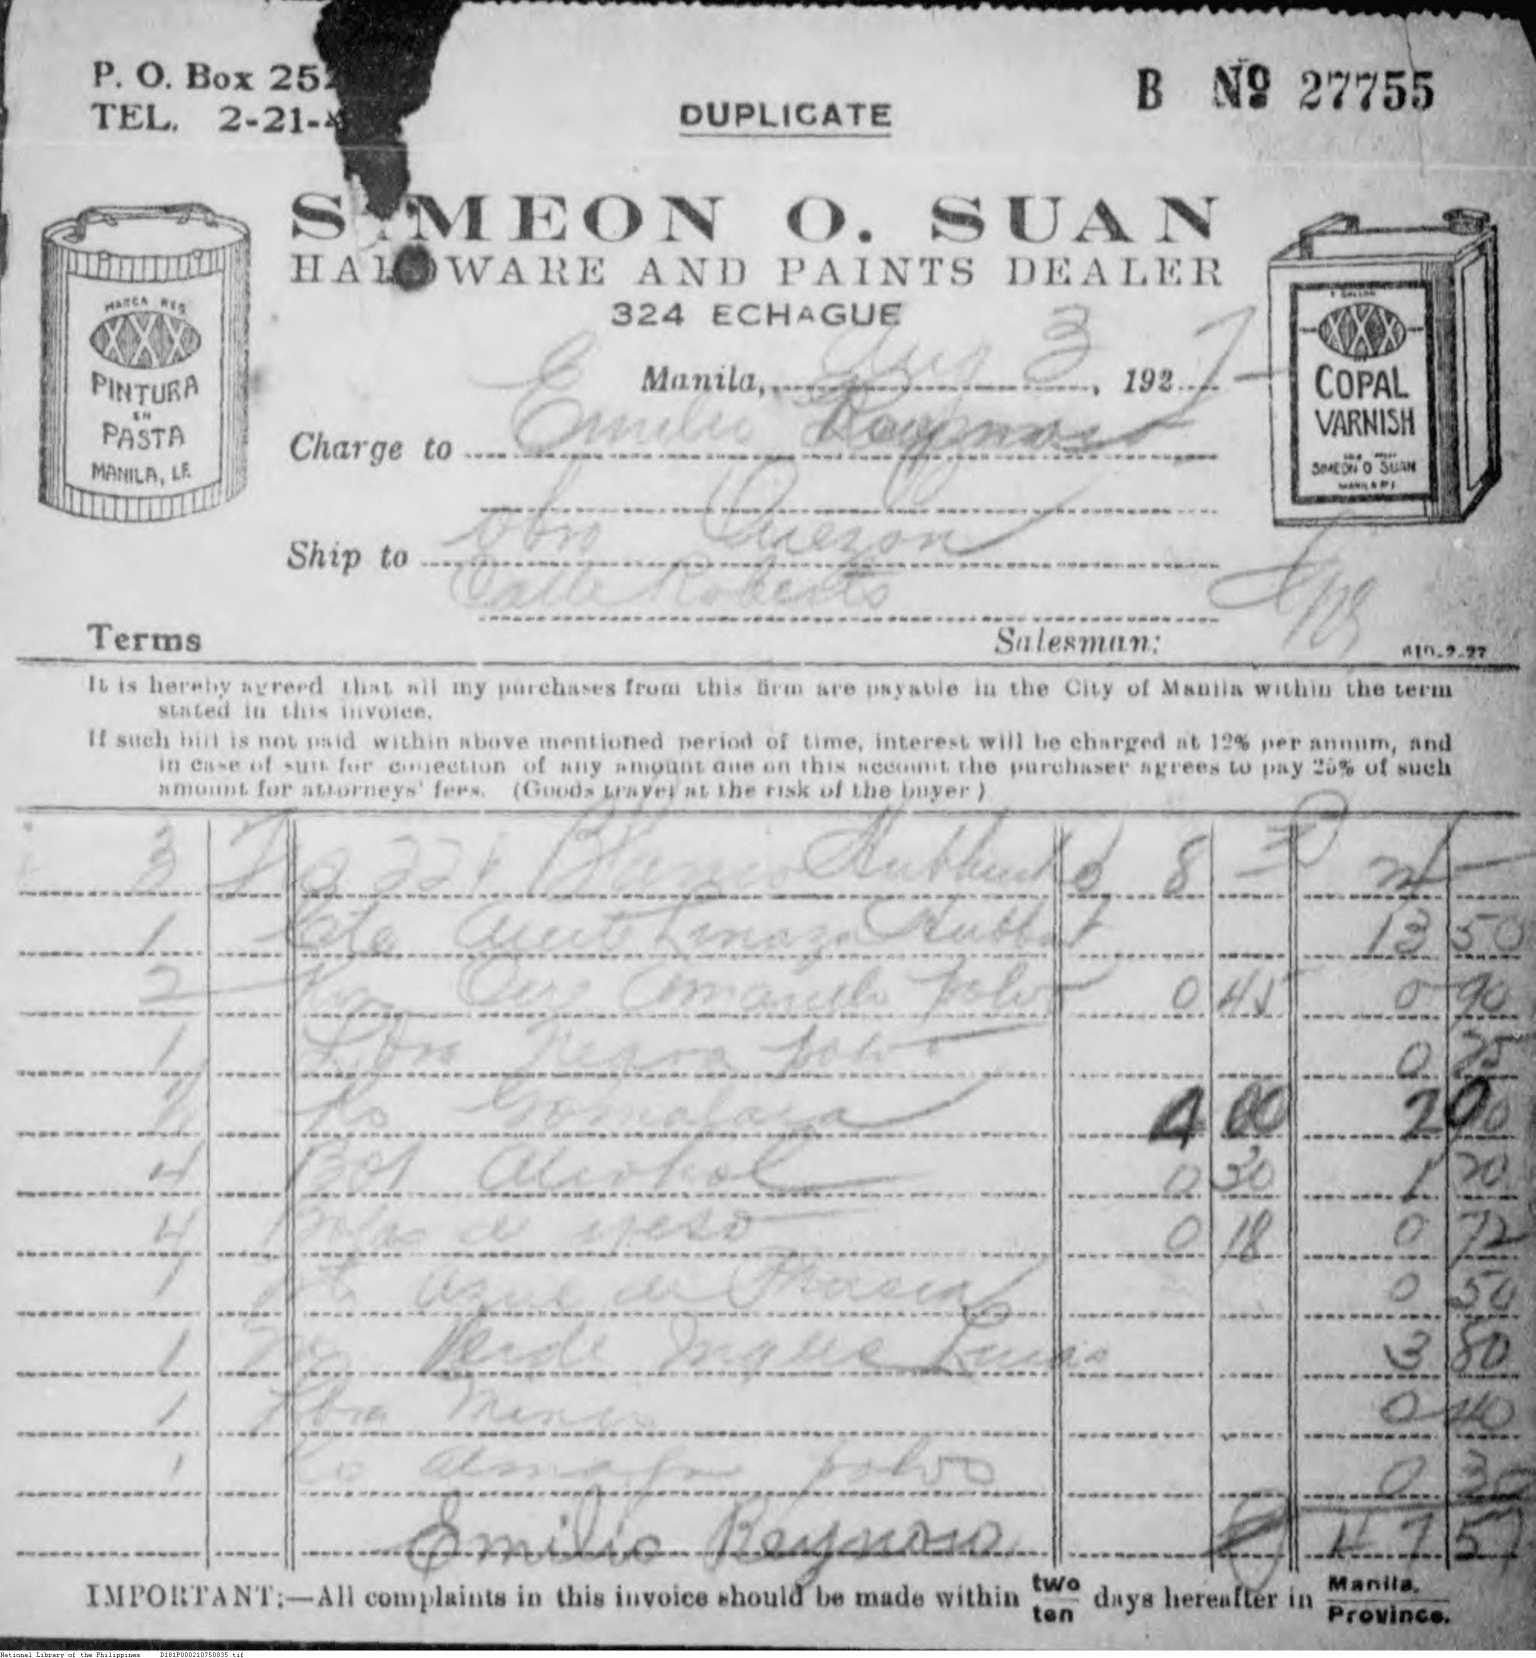 P. O. Box 252
TEL. 2-21-
DUPLICATE
B No 27755
SIMEON O. SUAN
HARDWARE AND PAINTS DEALER
324 ECHAGUE
MARCA REG
XXX
PINTURA
EN
PASTA
MANILA, I.F.
1 GALLON
XXX
COPAL
VARNISH
SIMEON O SUAN
MANILA P I
Manila, Aug 3, 1927
Charge to Emilio Reynoso
Ship to Obra Quezon
Calle Roberts
Terms
Salesman:
610-2-27
It is hereby agreed that all my purchases from this firm are payable in the City of Manila within the term
stated in this invoice.
If such bill is not paid within above mentioned period of time, interest will be charged at 12% per annum, and
in case of suit for collection of any amount due on this account the purchaser agrees to pay 25% of such
amount for attorneys' fees. (Goods travel at the risk of the buyer)
3 Blanco Hubbuck 8 24
1 Lata Aceite Linaza Hubbuck 13 50
2 Kos Ocre Amarillo polvo 0 45 0 90
1 Libra Negro polvo 0 25
½ Ko Gomalaca 4 00 2 00
4 Bot Alcohol 0 30 1 20
4 de yeso 0 18 0 72
1 Azul de Prusia 0 50
1 Verde Ingles 3 80
1 Lbra 0 40
1 Ko polvo 0 30
Emilio Reynoso 47 57
IMPORTANT:—All complaints in this invoice should be made within two/ten days hereafter in Manila./Province.
National Library of the Philippines D181P000210750835.tif